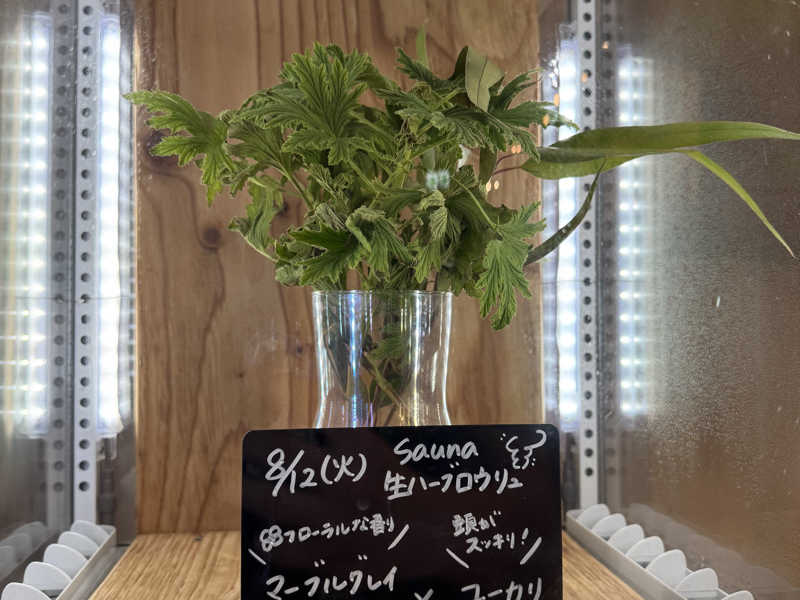 8/12(火)
Sauna
生ハーブロウリュ
フローラルな香り
頭が
スッキリ!
マーブルグレイ
×
ユーカリ